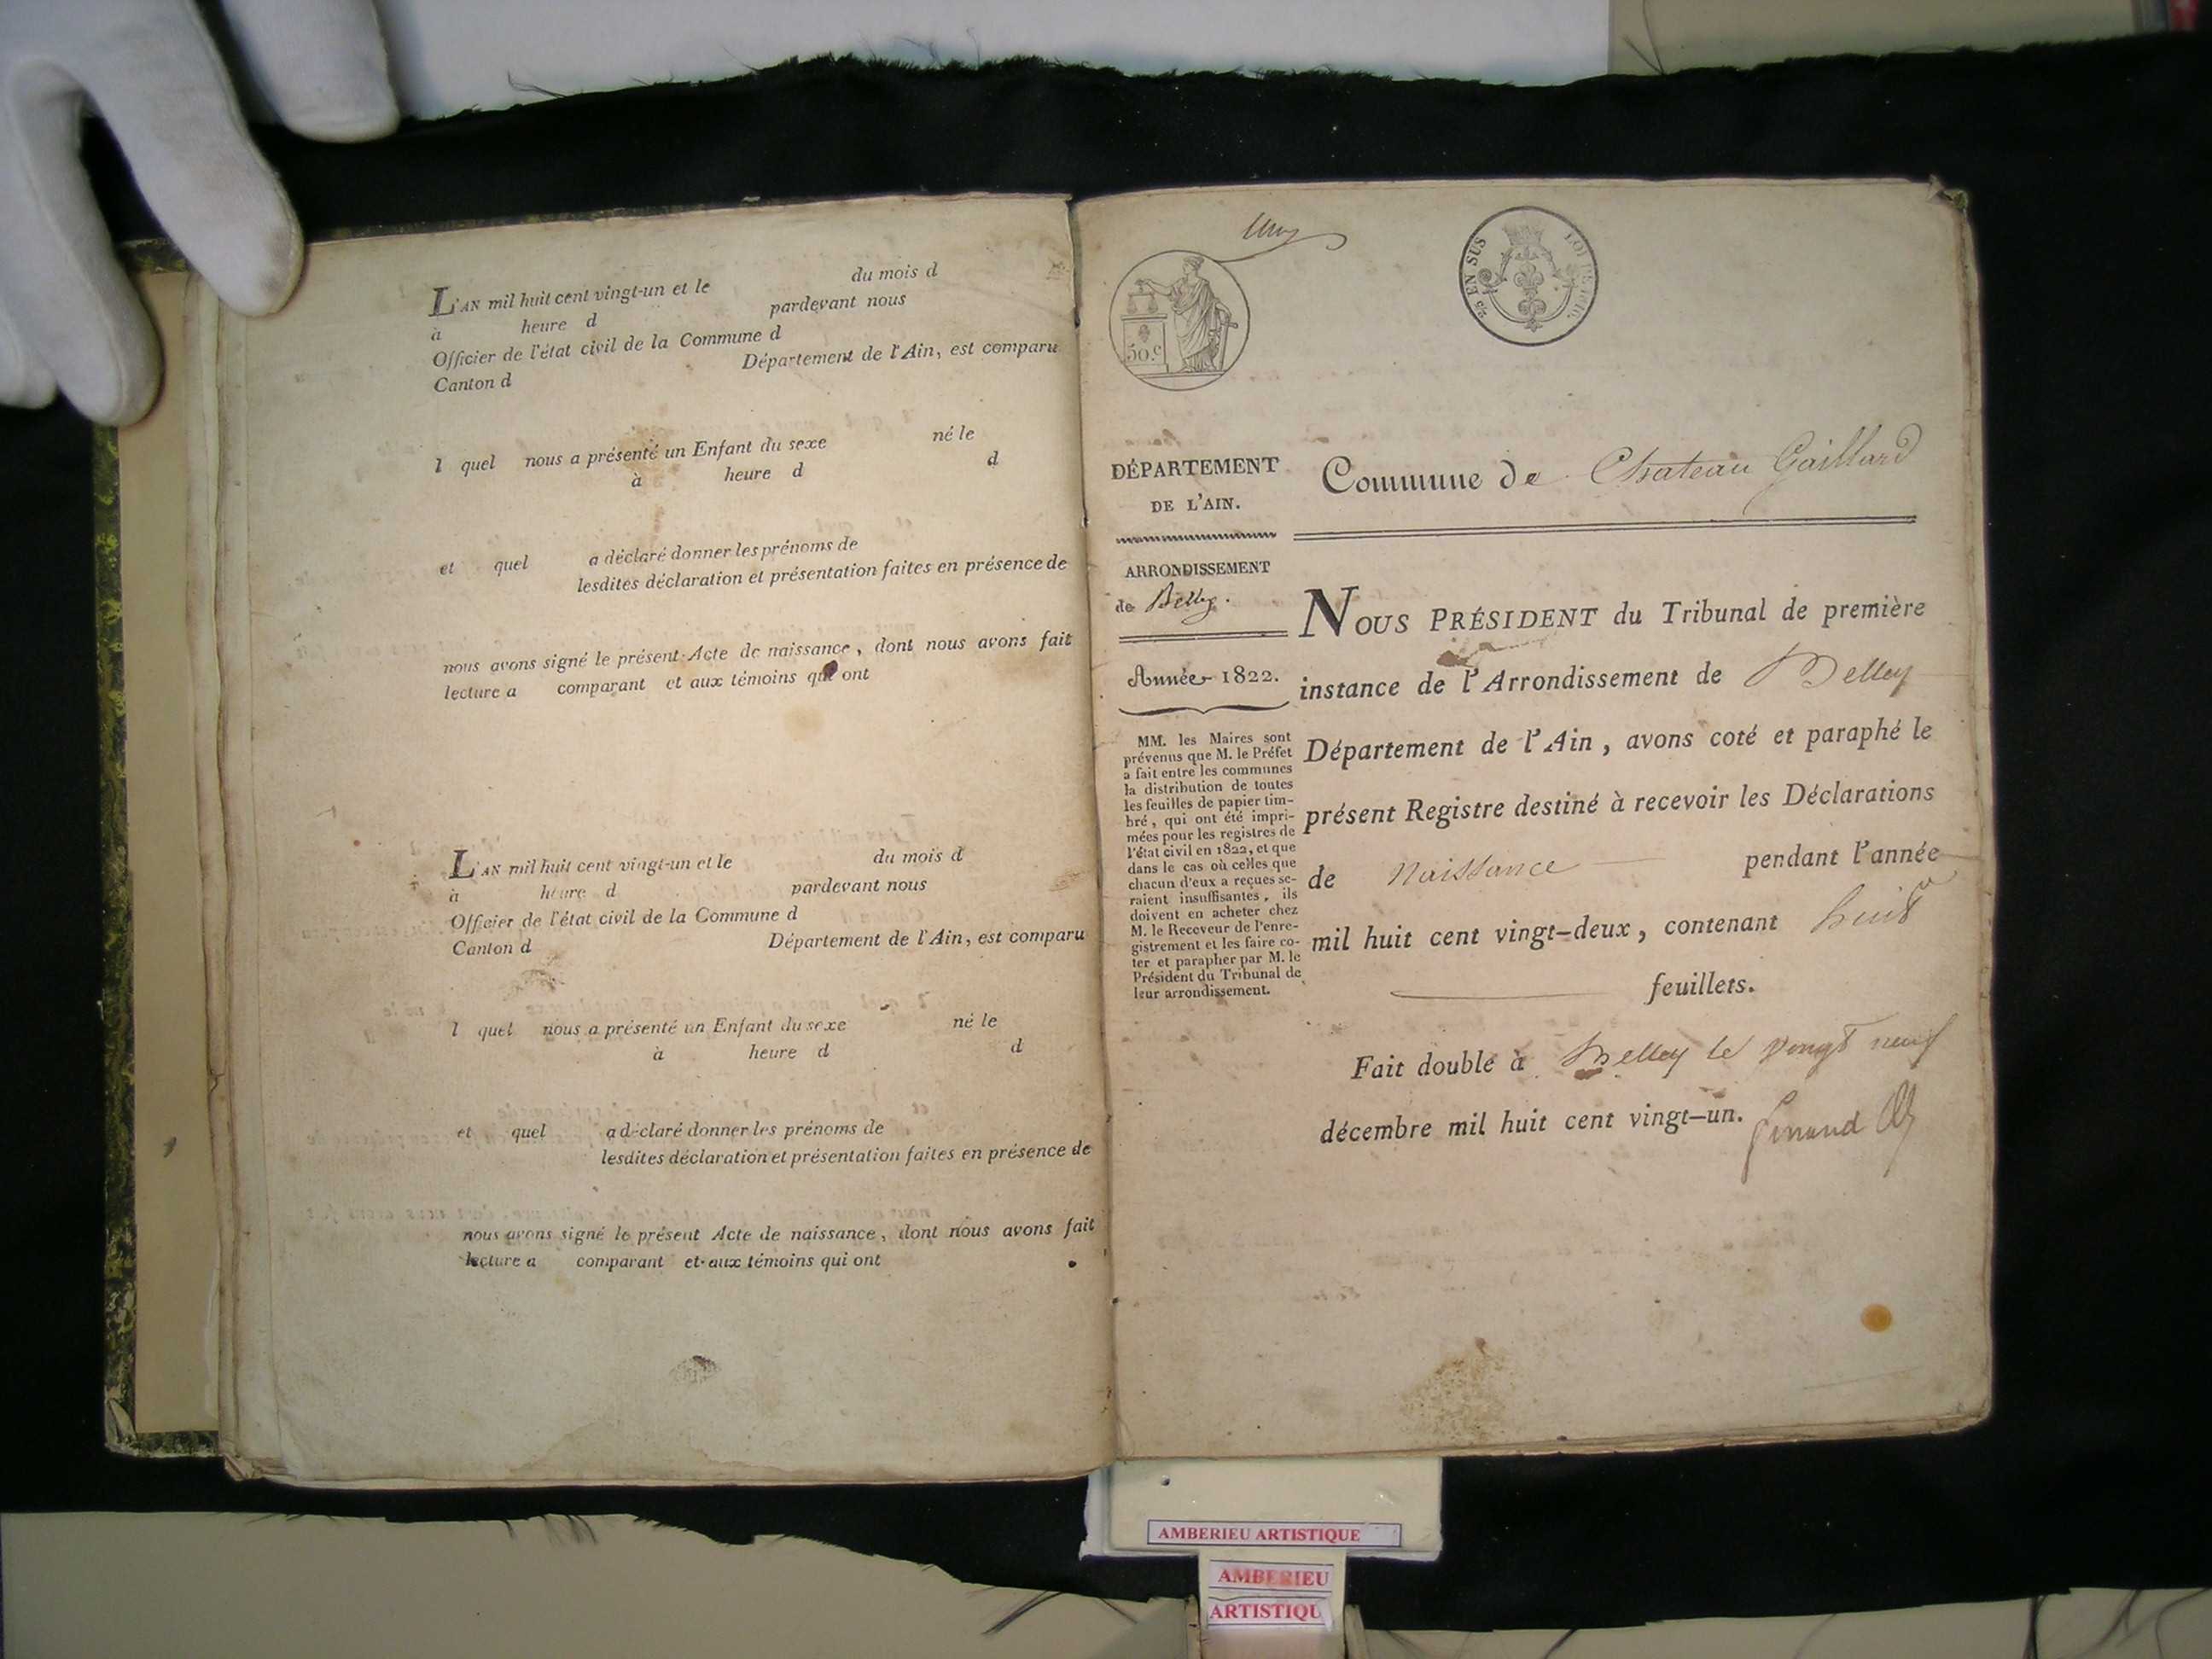 L'AN mil huit cent vingt-un et le du mois d
à heure d pardevant nous
Officier de l'état civil de la Commune d
Canton d Département de l'Ain, est comparu
l quel nous a présenté un Enfant du sexe né le
à heure d d
et quel a déclaré donner les prénoms de
lesdites déclaration et présentation faites en présence de
nous avons signé le présent Acte de naissance, dont nous avons fait
lecture a comparant et aux témoins qui ont
L'AN mil huit cent vingt-un et le du mois d
à heure d pardevant nous
Officier de l'état civil de la Commune d
Canton d Département de l'Ain, est comparu
l quel nous a présenté un Enfant du sexe né le
à heure d d
et quel a déclaré donner les prénoms de
lesdites déclaration et présentation faites en présence de
nous avons signé le présent Acte de naissance, dont nous avons fait
lecture a comparant et aux témoins qui ont
50.c
EN SUS
DÉPARTEMENT
DE L'AIN.
ARRONDISSEMENT
de Belley.
Année 1822.
MM. les Maires sont
prévenus que M. le Préfet
a fait entre les communes
la distribution de toutes
les feuilles de papier tim-
bré, qui ont été impri-
mées pour les registres de
l'état civil en 1822, et que
dans le cas où celles que
chacun d'eux a reçues se-
raient insuffisantes, ils
doivent en acheter chez
M. le Receveur de l'enre-
gistrement et les faire co-
ter et parapher par M. le
Président du Tribunal de
leur arrondissement.
Commune de Chateau Gaillard
NOUS PRÉSIDENT du Tribunal de première
instance de l'Arrondissement de Belley
Département de l'Ain, avons coté et paraphé le
présent Registre destiné à recevoir les Déclarations
de Naissance pendant l'année
mil huit cent vingt-deux, contenant huit
feuillets.
Fait double à Belley le vingt neuf
décembre mil huit cent vingt-un.
AMBERIEU ARTISTIQUE
AMBERIEU
ARTISTIQU